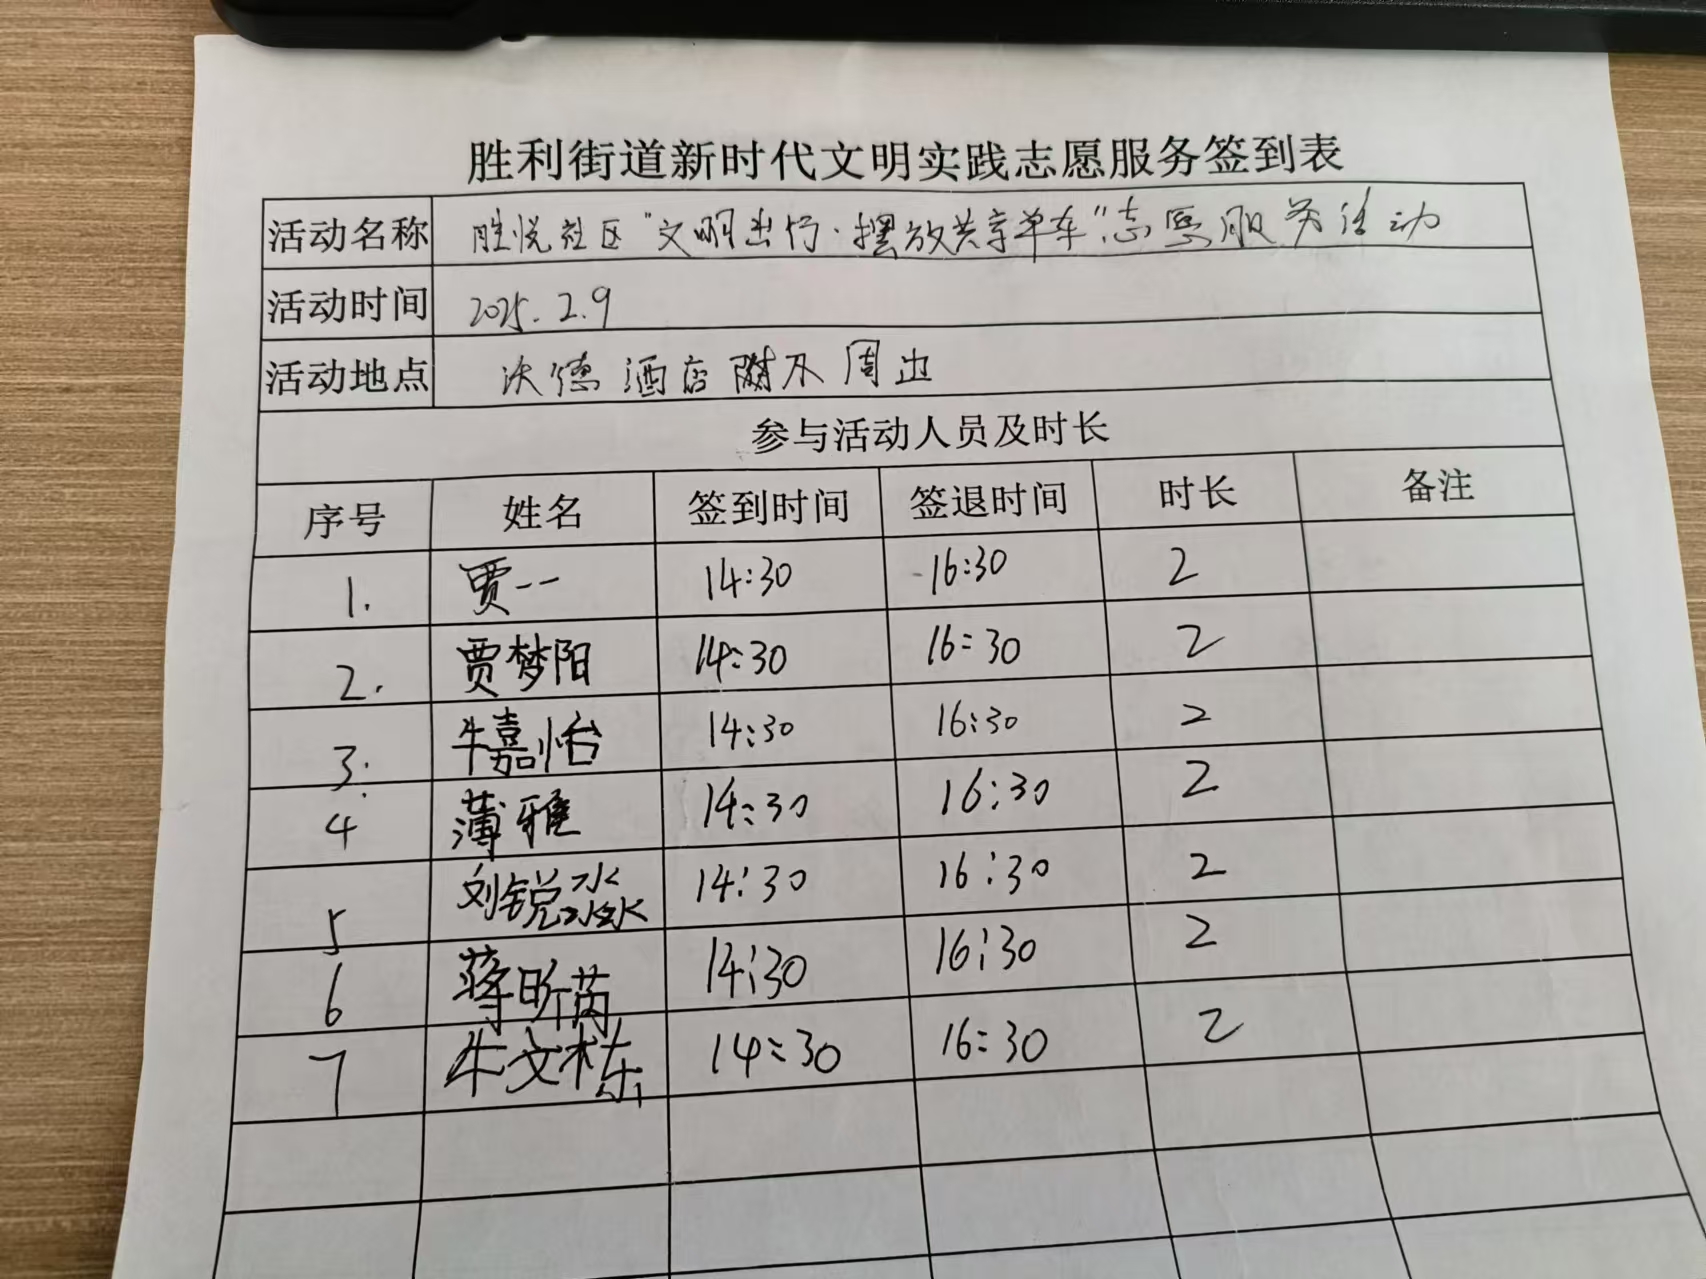 胜利街道新时代文明实践志愿服务签到表
活动名称 胜悦社区"文明出行·摆放共享单车"志愿服务活动
活动时间 2025.2.9
活动地点 沃德酒店附及周边
参与活动人员及时长
序号 姓名 签到时间 签退时间 时长 备注
1. 贾一一 14:30 16:30 2
2. 贾梦阳 14:30 16:30 2
3. 牛嘉怡 14:30 16:30 2
4 薄雅 14:30 16:30 2
5 刘锐淼 14:30 16:30 2
6 蒋昕芮 14:30 16:30 2
7 牛文栋 14:30 16:30 2